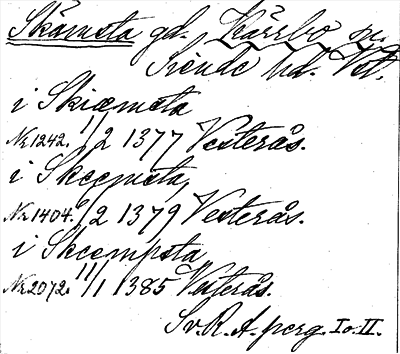 Skämsta gd. Kärrbo sn.
Siende hd. Vstm.
i Skiæmsta
Nr 1242. 11/2 1377 Vesterås.
i Skeemsta
Nr 1404. 6/2 1379 Vesterås.
i Skeempsta
Nr 2072. 11/1 1385 Vesterås.
Sv. R. A. perg. I o. II.